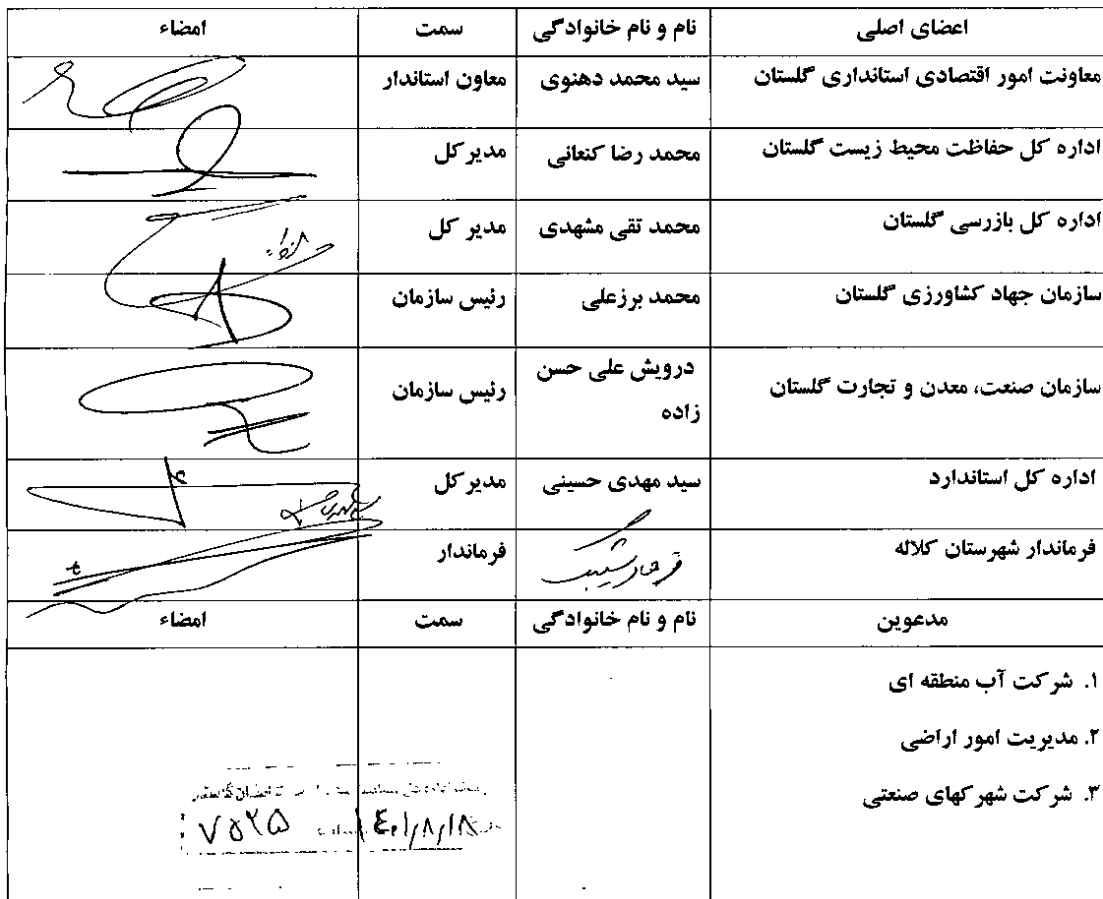 اعضای اصلی نام و نام خانوادگی سمت امضاء
معاونت امور اقتصادی استانداری گلستان سید محمد دهنوی معاون استاندار
اداره کل حفاظت محیط زیست گلستان محمد رضا کنعانی مدیر کل
اداره کل بازرسی گلستان محمد تقی مشهدی مدیر کل
سازمان جهاد کشاورزی گلستان محمد برزعلی رئیس سازمان
سازمان صنعت، معدن و تجارت گلستان درویش علی حسن رئیس سازمان
زاده
اداره کل استاندارد سید مهدی حسینی مدیر کل
فرماندار شهرستان کلاله فرماندار
مدعوین نام و نام خانوادگی سمت امضاء
۱. شرکت آب منطقه ای
۲. مدیریت امور اراضی
۳. شرکت شهرکهای صنعتی
۱۴۰۱/۸/۱۸ ۷۵۲۵